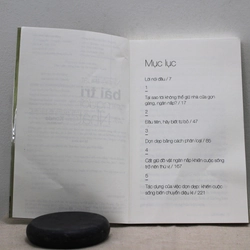 bài trí
Mục lục
Lời nói đầu / 7
1
Tại sao tôi không thể giữ nhà cửa gọn
gàng, ngăn nắp? / 17
2
Đầu tiên, hãy biết từ bỏ / 47
3
Dọn dẹp bằng cách phân loại / 85
4
Cất giữ đồ vật ngăn nắp khiến cuộc sống
trở nên thú vị / 167
5
Tác dụng của việc dọn dẹp, khiến cuộc
sống biến chuyển đầy kì / 221